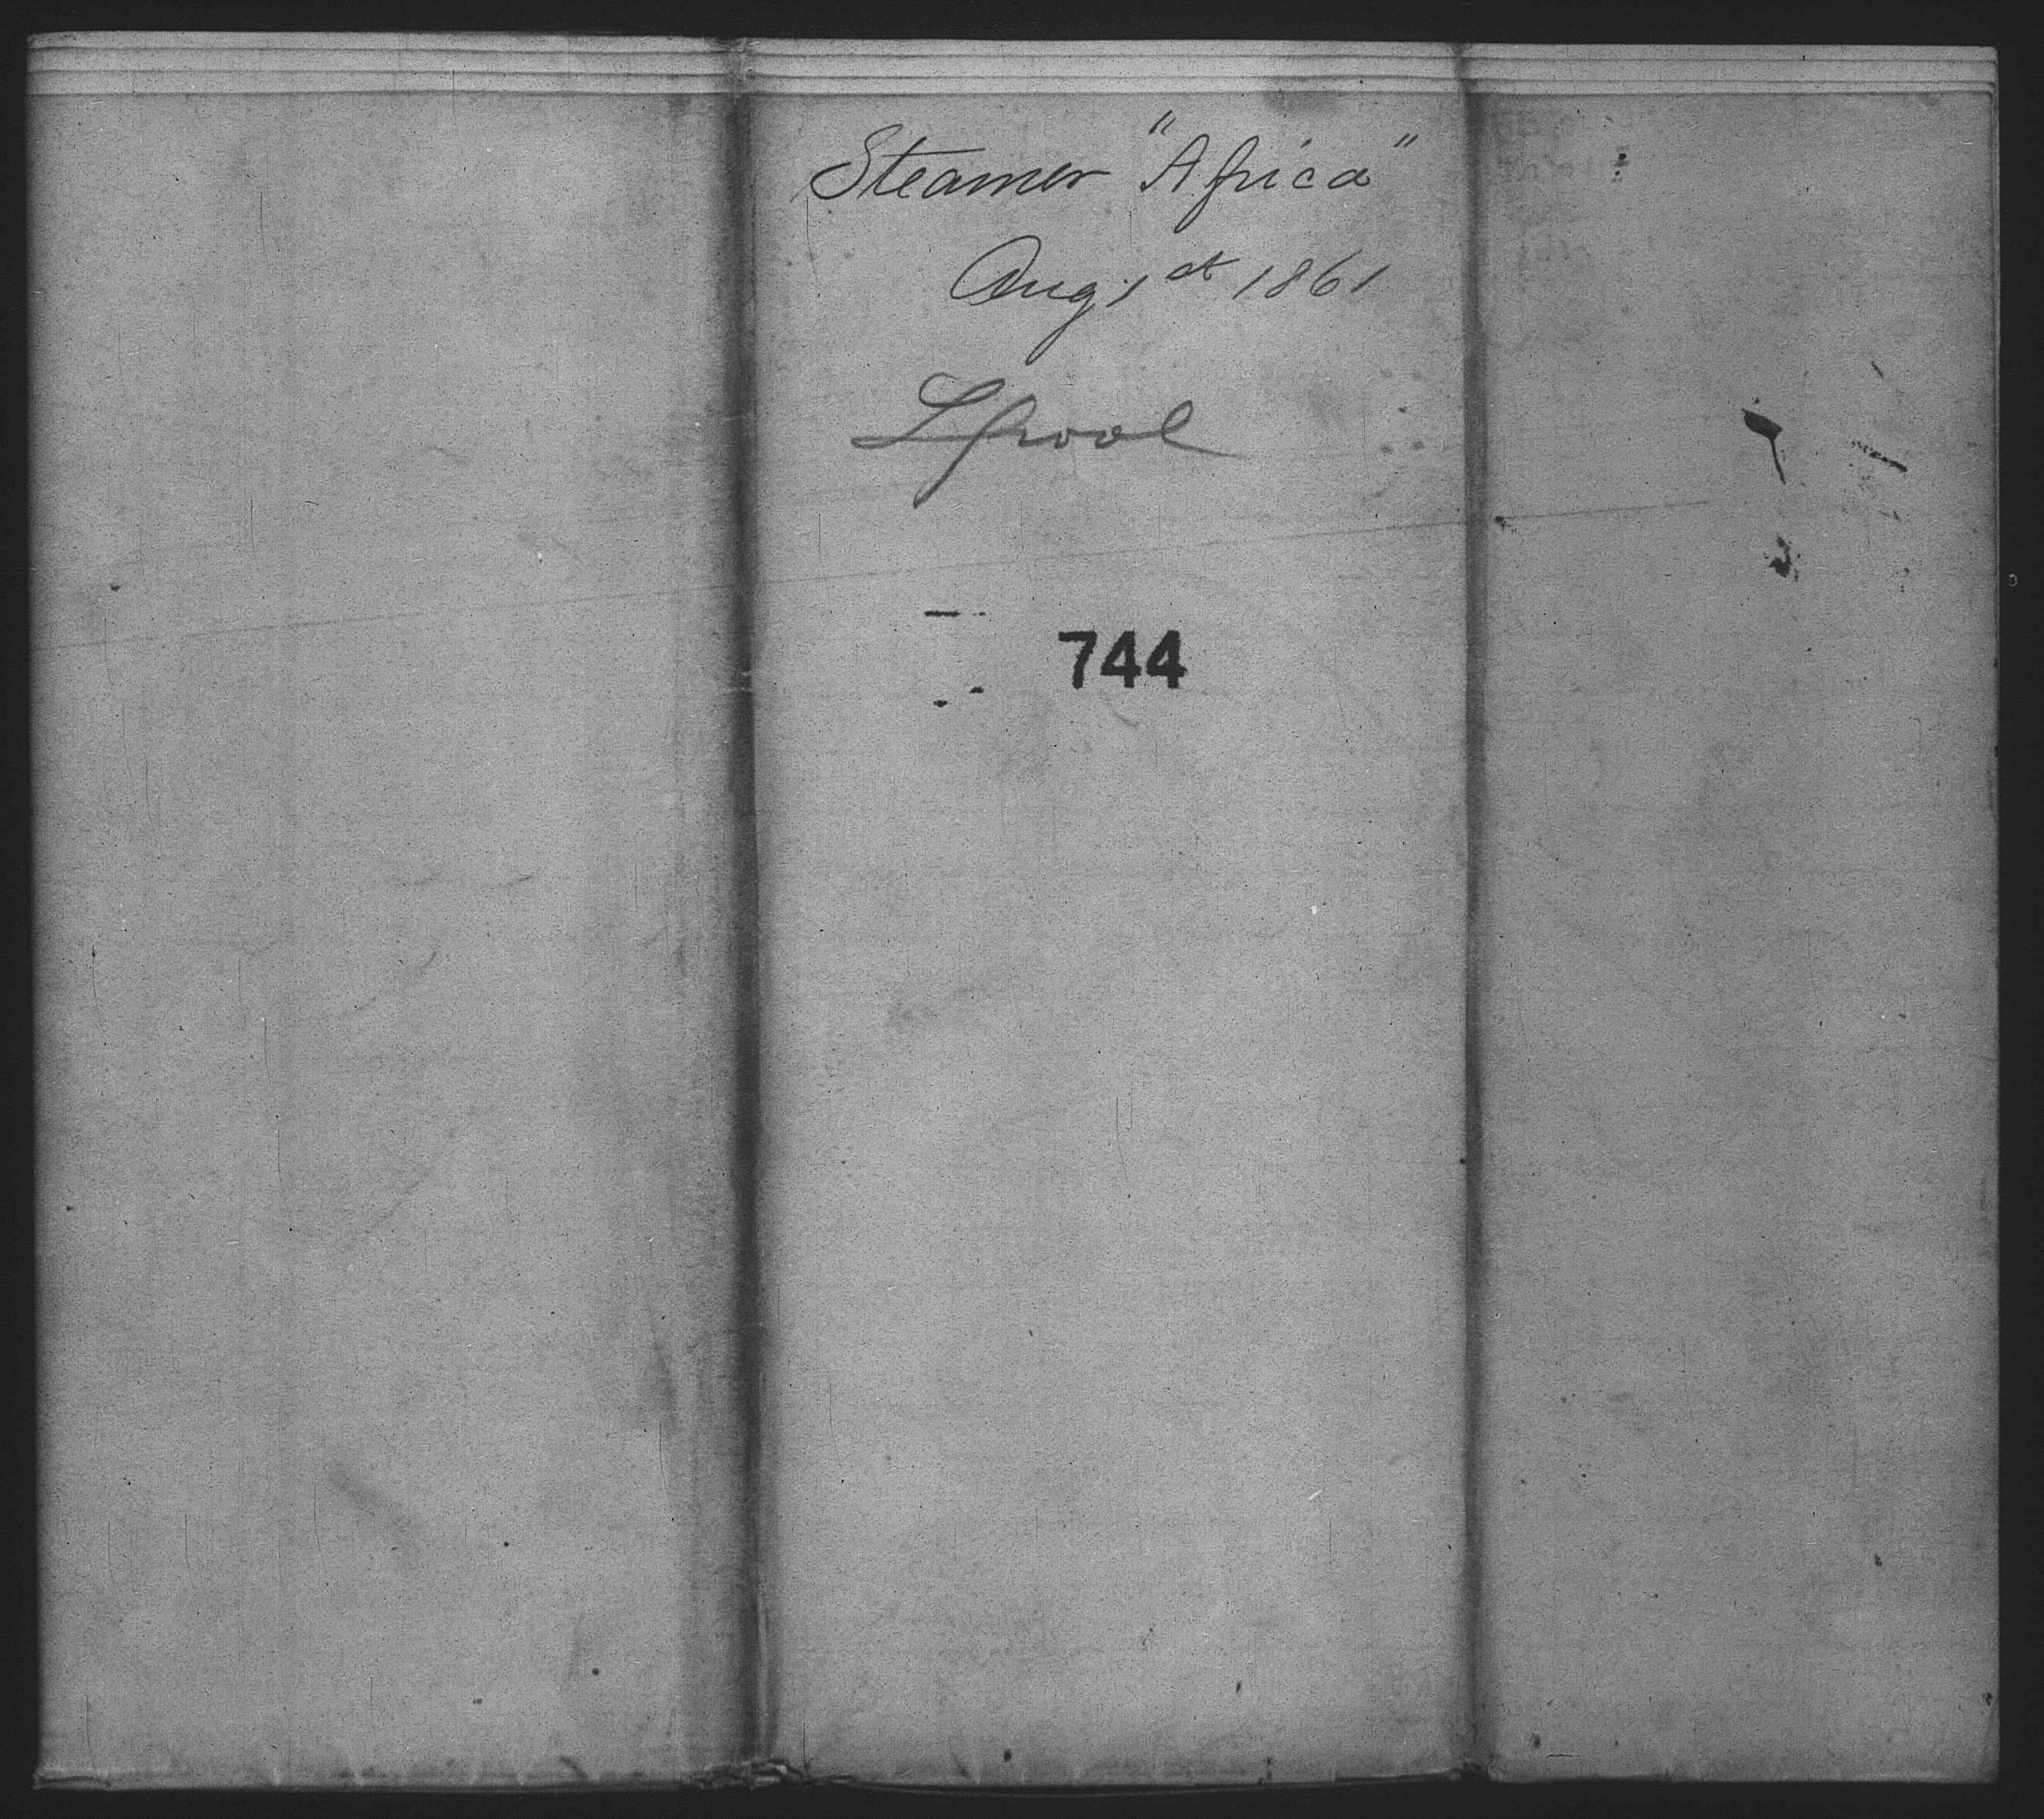 Steamer "Africa"
Aug 1st 1861
Lpool
744